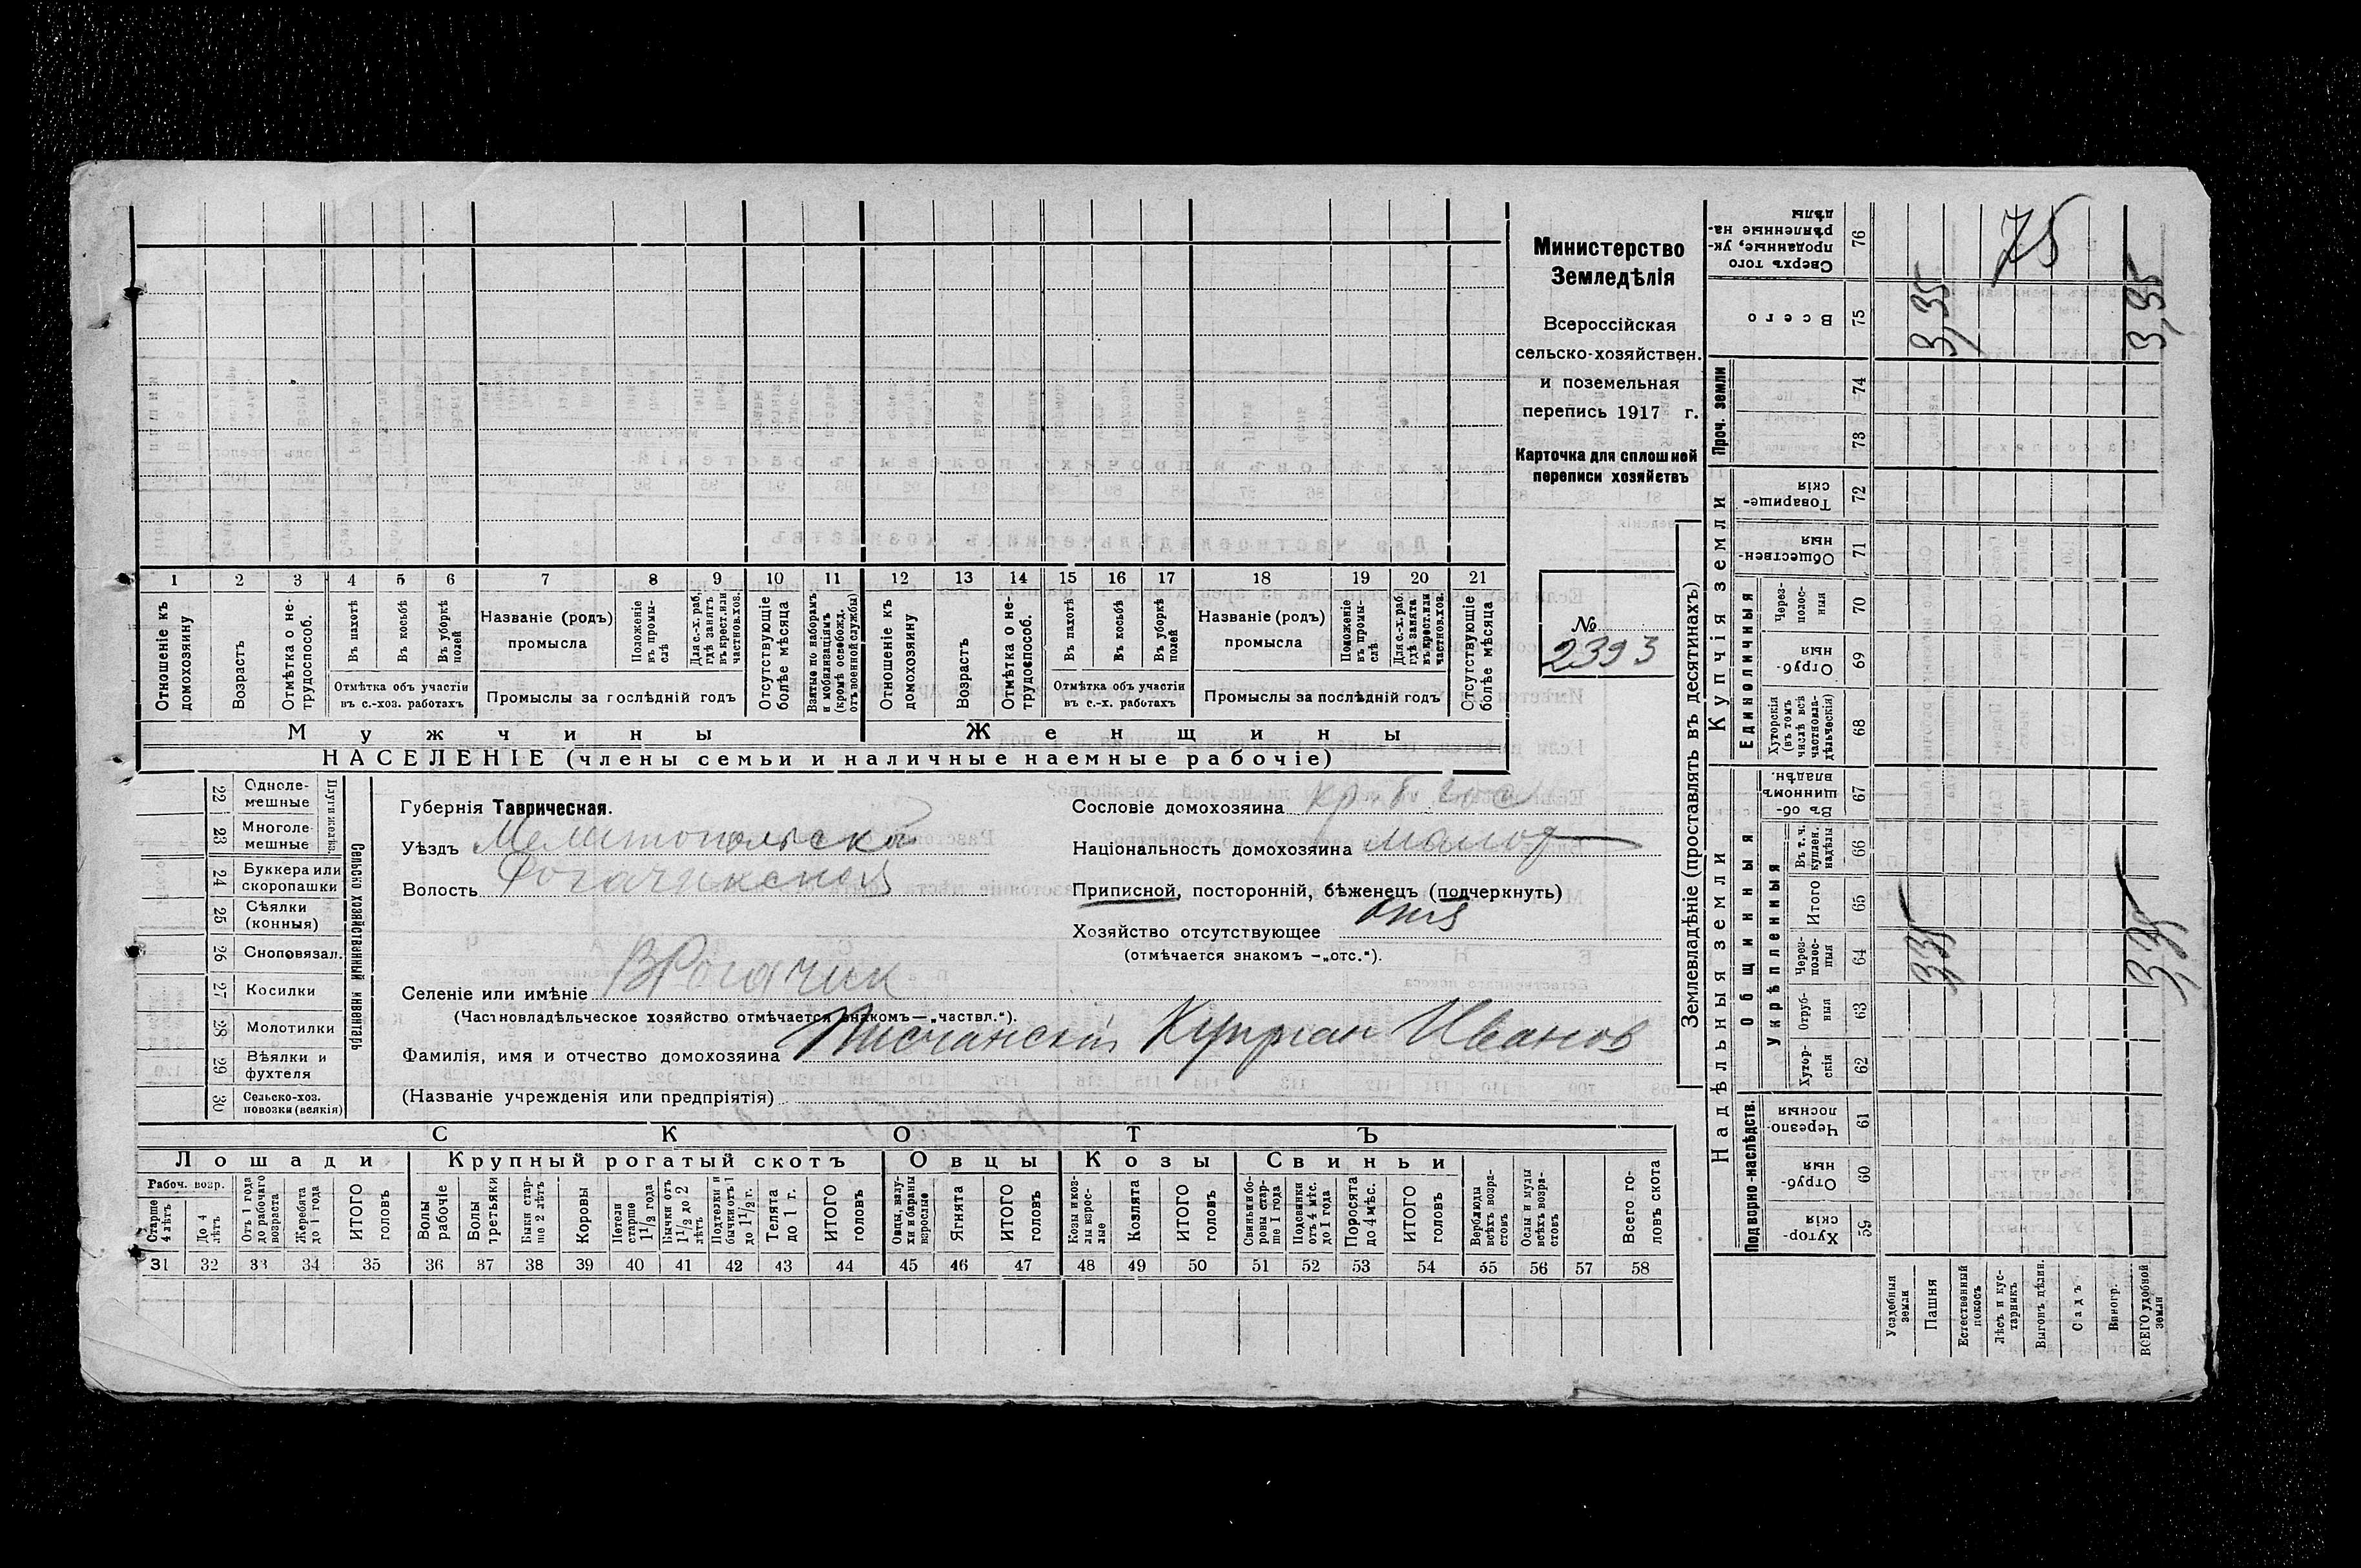 Министерство
Земледѣлія
Всероссійская
сельско-хозяйствен.
и поземельная
перепись 1917 г.
Карточка для сплошной
переписи хозяйствъ
№
2393
1 2 3 4 5 6 7 8 9 10 11 12 13 14 15 16 17 18 19 20 21
Отношеніе къ домохозяину
Возрастъ
Отмѣтка о не-трудоспособ.
Въ пахотѣ
Въ косьбѣ
Въ уборкѣ полей
Отмѣтка объ участіи
въ с.-хоз. работахъ
Названіе (родъ)
промысла
Положеніе въ промы-слѣ
Для с.-х. раб., гдѣ занятъ въ крест. или частнов. хоз.
Промыслы за послѣдній годъ
Отсутствующіе болѣе мѣсяца
Взятые по наборамъ и мобилизаціямъ (кромѣ освобожд. отъ военной службы)
Отношеніе къ домохозяину
Возрастъ
Отмѣтка о не-трудоспособ.
Въ пахотѣ
Въ косьбѣ
Въ уборкѣ полей
Отмѣтка объ участіи
въ с.-х. работахъ
Названіе (родъ)
промысла
Положеніе въ промы-слѣ
Для с.-х. раб. гдѣ занята въ крест. или частнов. хоз.
Промыслы за послѣдній годъ
Отсутствующіе болѣе мѣсяца
Мужчины Женщины
НАСЕЛЕНІЕ (члены семьи и наличные наемные рабочіе)
22 Одноле-мешные
23 Многоле-мешные
Плуги желѣз.
24 Буккера или скоропашки
25 Сѣялки (конныя)
26 Сноповязал.
27 Косилки
28 Молотилки
29 Вѣялки и фухтеля
30 Сельско-хоз. повозки (всякія)
Сельско хозяйственный инвентарь
Губернія Таврическая.
Уѣздъ Мелитопольскій
Волость Рогачикской
Селеніе или имѣніе В Рогачик
(Частновладѣльческое хозяйство отмѣчается знакомъ—„частвл.“).
Фамилія, имя и отчество домохозяина Писчанскій Куприан Иванов
(Названіе учрежденія или предпріятія)
Сословіе домохозяина
Національность домохозяина малор
Приписной, посторонній, бѣженецъ (подчеркнуть)
Хозяйство отсутствующее отс
(отмѣчается знакомъ —„отс.“).
СКОТЪ
Лошади Крупный рогатый скотъ Овцы Козы Свиньи
Рабоч. возр.
Старше 4 лѣтъ
До 4 лѣтъ
Отъ 1 года до рабочаго возраста
Жеребята до 1 года
ИТОГО головъ
Волы рабочіе
Волы третьяки
Быки стар-ше 2 лѣтъ
Коровы
Нетели старше 1½ года
Бычки отъ 1½ до 2 лѣтъ
Подтелки и бычки отъ 1 до 1½ г.
Телята до 1 г.
ИТОГО головъ
Овцы, валу-хи и бараны взрослые
Ягнята
ИТОГО головъ
Козы и коз-лы взрос-лые
Козлята
ИТОГО головъ
Свиньи и бо-ровы стар-ше 1 года
Подсвинки отъ 4 мѣс. до 1 года
Поросята до 4 мѣс.
ИТОГО головъ
Верблюды всѣхъ возра-стовъ
Ослы и мулы всѣхъ возра-стовъ
Всего го-ловъ скота
31 32 33 34 35 36 37 38 39 40 41 42 43 44 45 46 47 48 49 50 51 52 53 54 55 56 57 58
Землевладѣніе (проставлять въ десятинахъ)
Надѣльныя земли Купчія земли Проч. земли
Подворно-наслѣдств.
Общинныя
Укрѣпленныя
Единоличныя
Сверхъ того проданные, ук-рѣпленные на-дѣлы 76
Всего 75
74
73
Товарище-скія 72
Обществен-ныя 71
Через-полос-ныя 70
Отруб-ныя 69
Хуторскія (въ томъ числѣ всѣ частновла-дѣльческія) 68
Въ об-щинномъ владѣн. 67
Въ т. ч. куплен. надѣлы 66
Итого 65
Через-полос-ныя 64
Отруб-ныя 63
Хутор-скія 62
Черезпо-лосныя 61
Отруб-ныя 60
Хутор-скія 59
Усадебныя земли
Пашня
Естественный покосъ
Лѣсъ и кус-тарникъ
Выгонъ цѣлин.
Садъ
Виногр.
ВСЕГО удобной земли
75
3,35
3,35
335
3,35